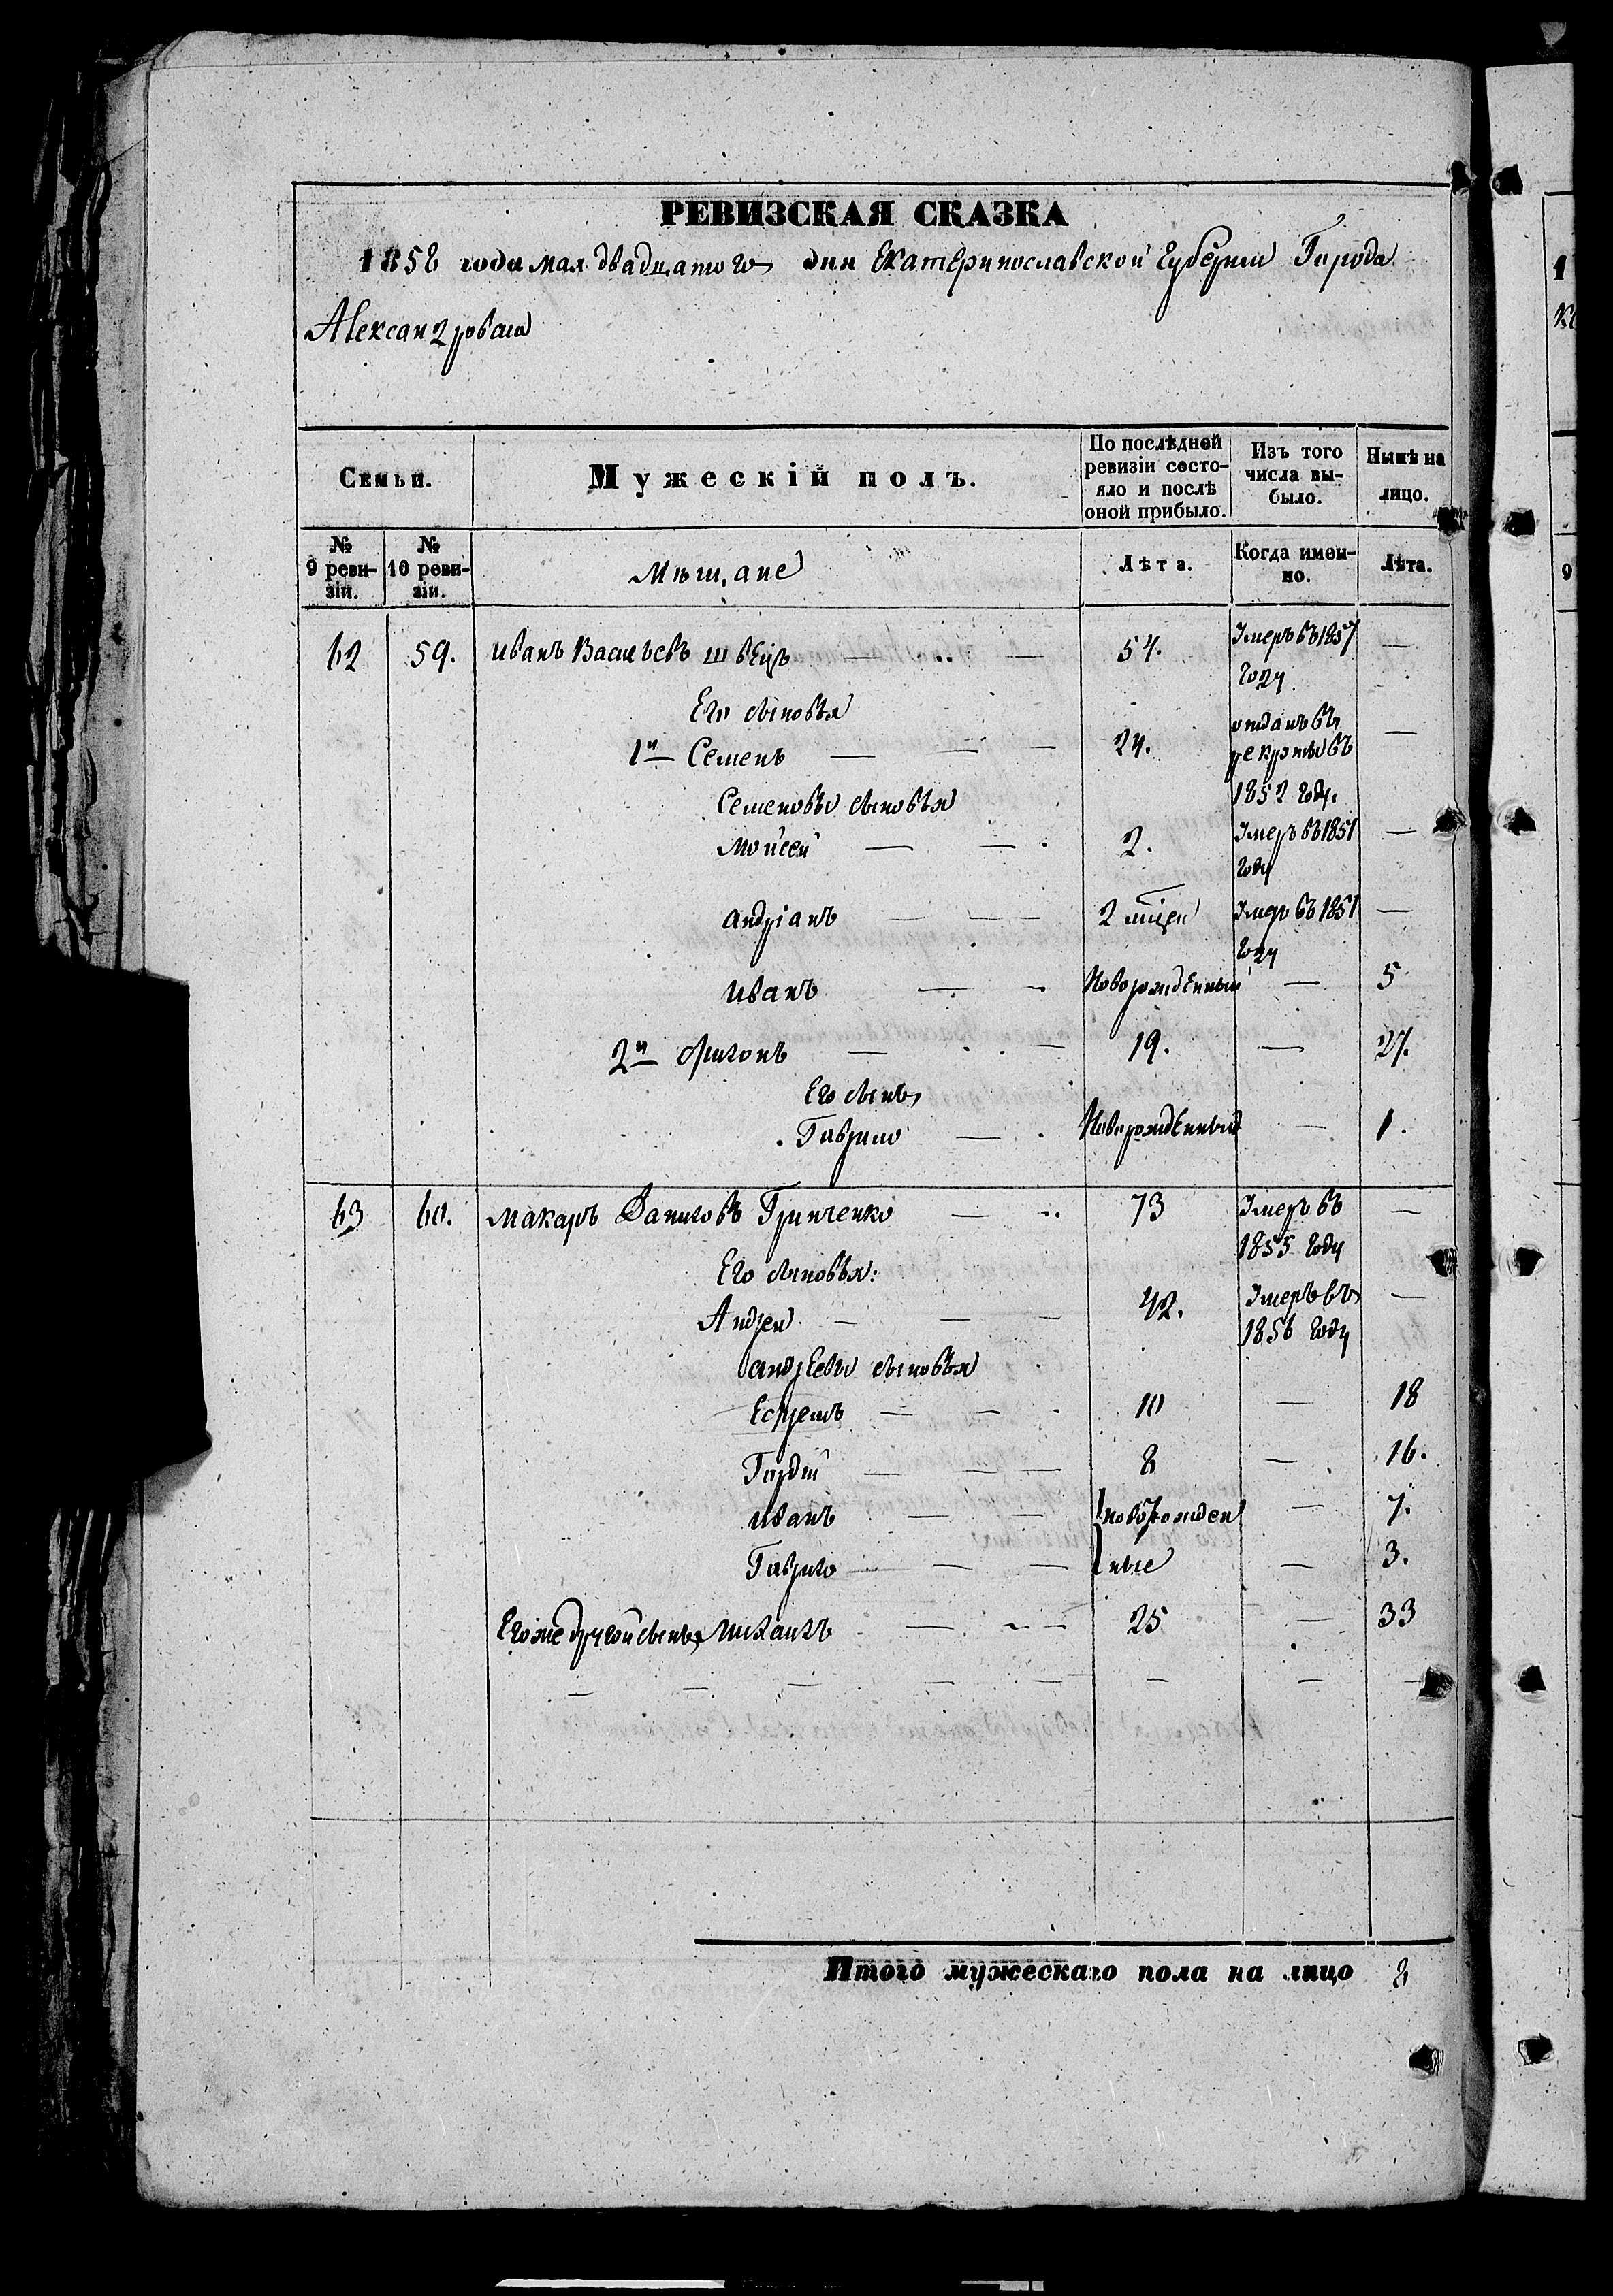 РЕВИЗСКАЯ СКАЗКА
1858 года мая двадцатого дня Екатеринославской Губернии Города
Александровска
Семьи.
Мужескій полъ.
По послѣдней ревизіи состо-яло и послѣ оной прибыло.
Изъ того числа вы-было.
Нынѣ на лицо.
№ 9 реви-зіи.
№ 10 реви-зіи.
Мѣщане
Лѣта.
Когда имен-но.
Лѣта.
62 59. Иванъ Васильевъ Швецъ — — 54. Умеръ въ 1857 году —
Его сыновья
1й Семенъ — — — 24. отданъ въ рекруты въ 1852 году. —
Семеновы сыновья
Мойсей — — 2. Умеръ въ 1851 году —
Андріанъ — — — 2 мѣсец Умеръ въ 1851 году —
Иванъ — — Новорожденный — 5
2й Филипъ — — 19. — 27.
Его сынъ
Гаврило — Новорожденный — 1.
63 60. Макаръ Даниловъ Гринченко — 73 Умеръ въ 1855 году —
Его сыновья:
Андрей — — — 42. Умеръ въ 1856 году —
Андреевы сыновья
Ефремъ — — 10 — 18
Гордій — — — 8 — 16.
Иванъ — — новорожден — 7.
Гаврило — — — ные — 3.
Его же другой сынъ Михаилъ — — — 25 — 33
— — — — — — — —
Итого мужескаго пола на лицо 8